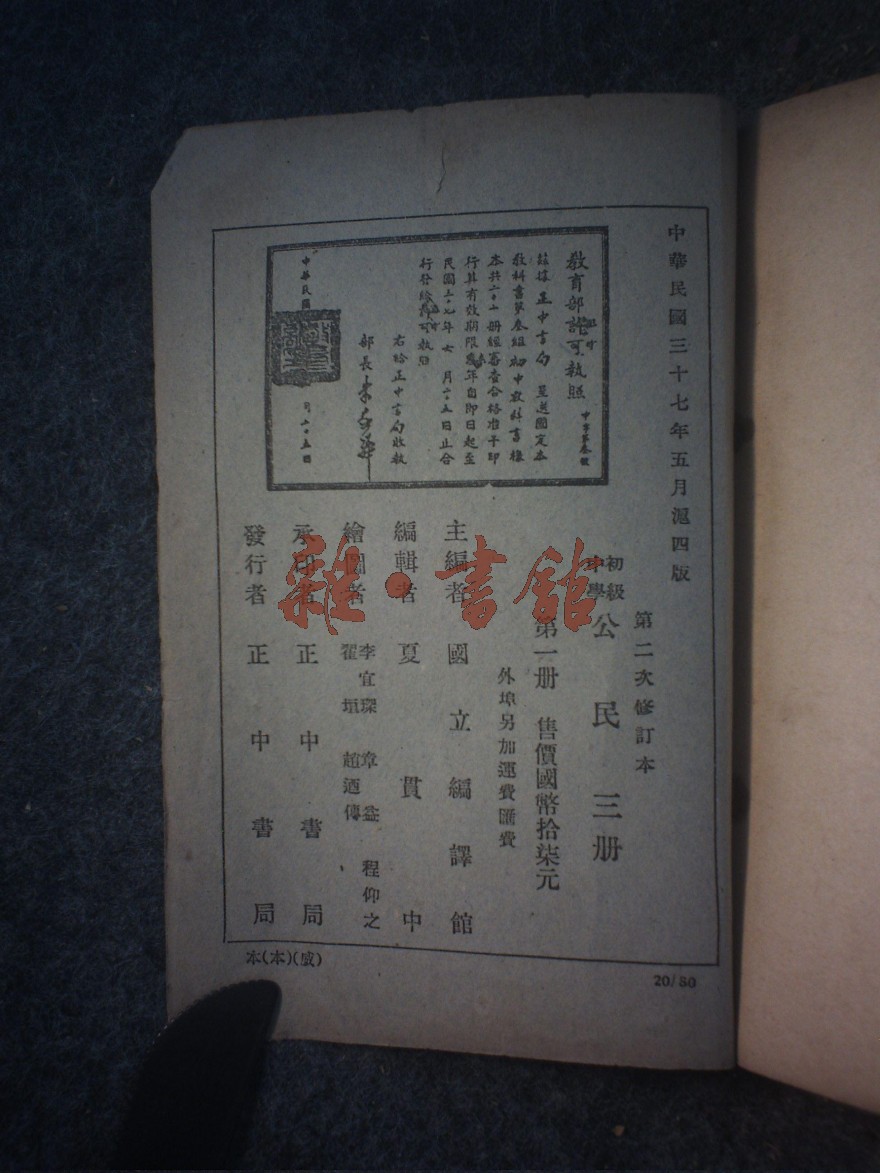 中華民國三十七年五月滬四版
第二次修訂本
初級中學公民三册
第一册 售價國幣拾柒元
外埠另加運費匯費
主編者 國立編譯館
編輯者 夏貫中
繪圖者 李宜琛 章益 程仰之
翟垣 趙迺傳
承印者 正中書局
發行者 正中書局
教育部許可執照
茲據正中書局呈送國定本
教科書第叁組初中教科書樣
本共二十一册經審查合格准予印
行其有效期限叁年自即日起至
民國三十九年七月二十五日止合
行發給許可執照
右給正中書局收執
部長朱家驊
中華民國
月二十五日
本(本)(威)
20/80
雜·書館